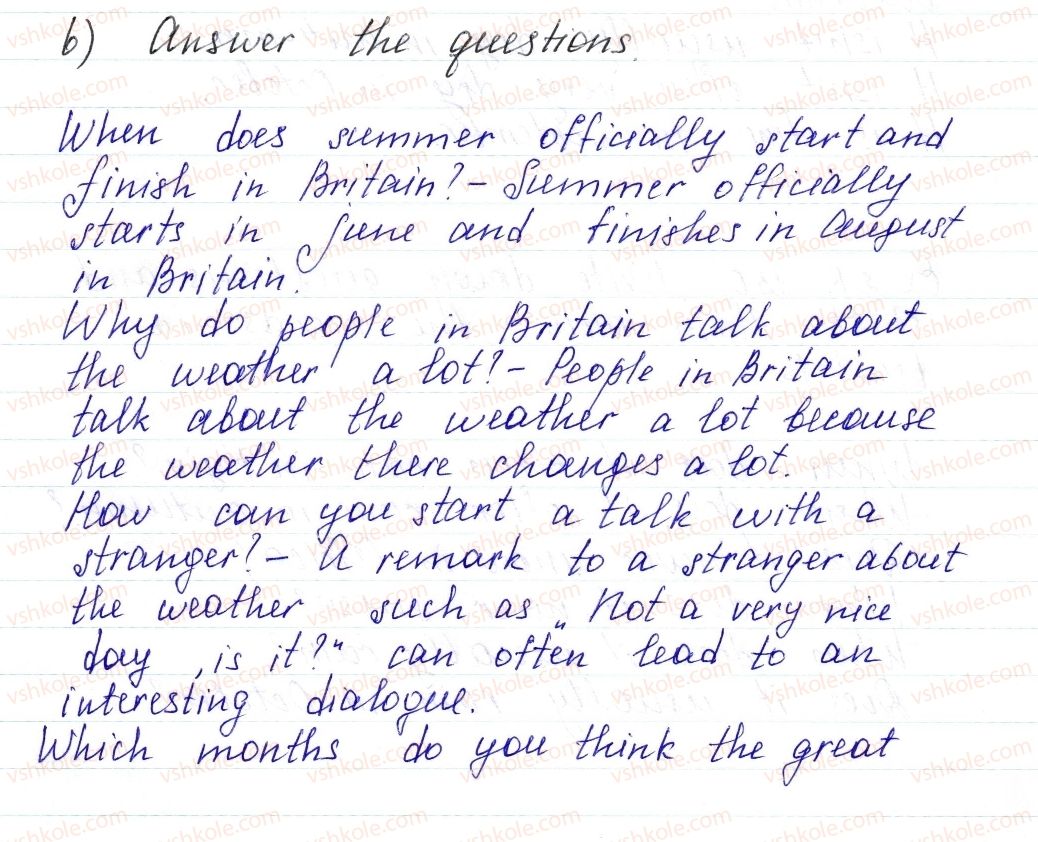 b) Answer the questions.
When does summer officially start and
finish in Britain? - Summer officially
starts in June and finishes in August
in Britain.
Why do people in Britain talk about
the weather a lot? - People in Britain
talk about the weather a lot because
the weather there changes a lot.
How can you start a talk with a
stranger? - A remark to a stranger about
the weather such as „Not a very nice
day, is it?" can often lead to an
interesting dialogue.
Which months do you think the great